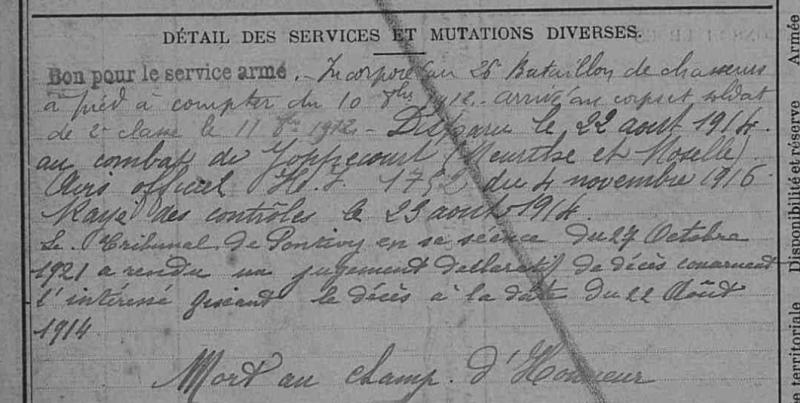 DÉTAIL DES SERVICES ET MUTATIONS DIVERSES.
Bon pour le service armé. - Incorporé au 26 Bataillon de chasseurs
à pied à compter du 10 8bre 1912. arrivé au corps et soldat
de 2e classe le 11 8bre 1912 - Disparu le 22 aout 1914.
au combat de Joppécourt (Meurthe et Moselle).
Avis officiel 1752 du 4 novembre 1916
Rayé des contrôles le 23 aout 1914.
Le Tribunal de Pontivy en sa séance du 27 Octobre
1921 a rendu un jugement déclaratif de décès concernant
l'intéressé fixant le décès à la date du 22 Août
1914
Mort au champ d'Honneur
Armée
Disponibilité et réserve
territoriale